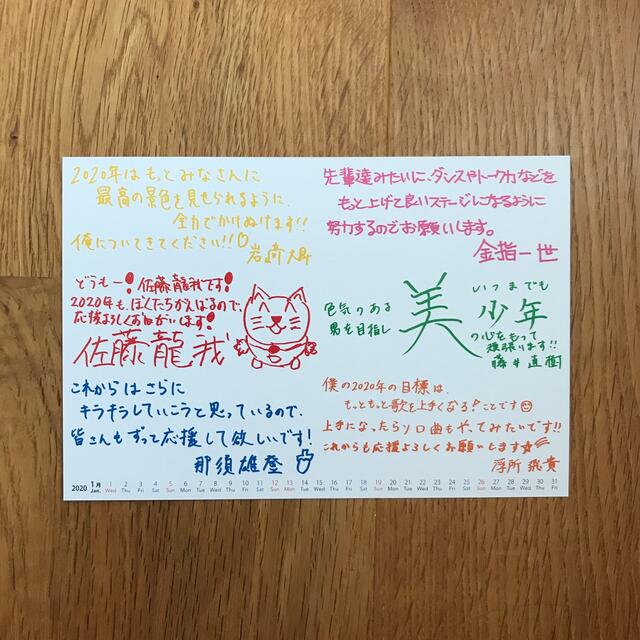 2020年はもっとみなさんに
最高の景色を見せられるように、
全力でかけぬけます!!
俺についてきてください!!
岩﨑大昇
先輩達みたいに、ダンスやトーク力などを
もっと上げて良いステージになるように
努力するのでお願いします。
金指一世
どうもー!佐藤龍我です!
2020年も、ぼくたちがんばるので、
応援よろしくおねがいします!
佐藤龍我
いつまでも
色気のある
男を目指し
美 少年
の心をもって
頑張ります!!
藤井直樹
これからはさらに
キラキラしていこうと思っているので、
皆さんもずっと応援して欲しいです!
那須雄登
僕の2020年の目標は、
もっともっと歌を上手くなる!ことです
上手になったらソロ曲もやってみたいです!!
これからも応援よろしくお願いします☆
浮所飛貴
2020 1月 Jan. 1 Wed 2 Thu 3 Fri 4 Sat 5 Sun 6 Mon 7 Tue 8 Wed 9 Thu 10 Fri 11 Sat 12 Sun 13 Mon 14 Tue 15 Wed 16 Thu 17 Fri 18 Sat 19 Sun 20 Mon 21 Tue 22 Wed 23 Thu 24 Fri 25 Sat 26 Sun 27 Mon 28 Tue 29 Wed 30 Thu 31 Fri